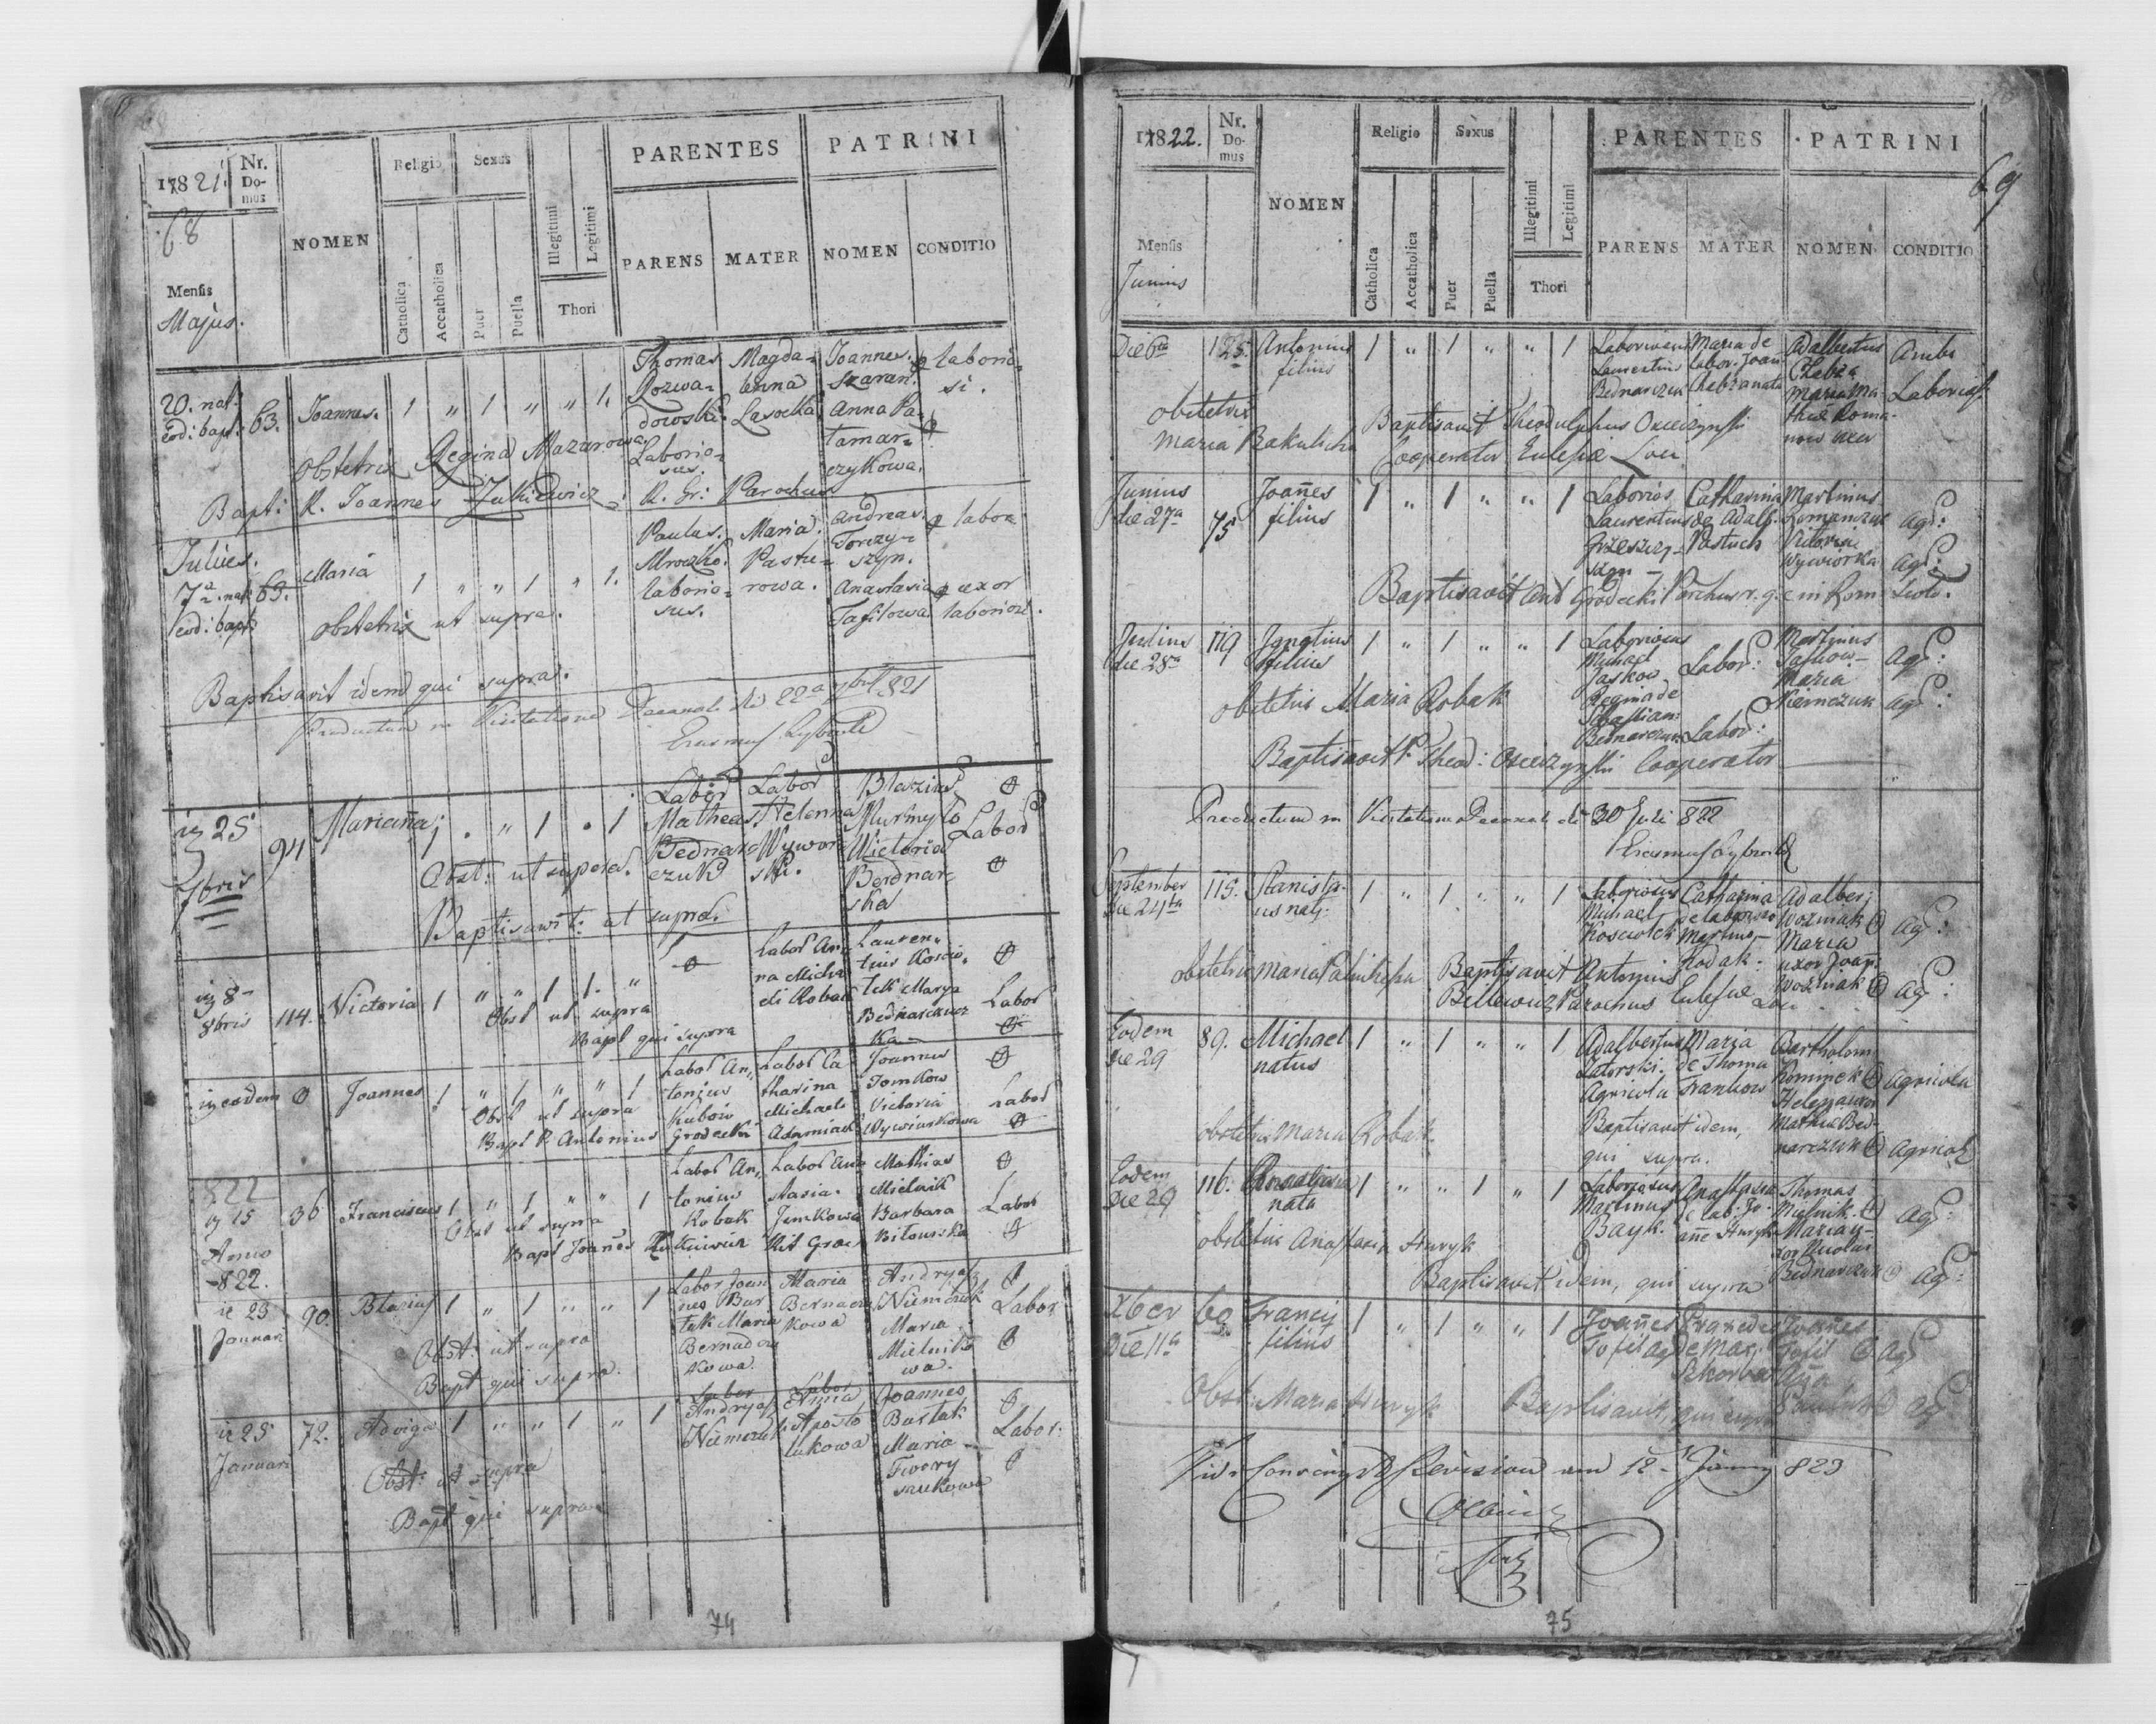 68
1821.
Nr. Do-mus
NOMEN
Religio
Sexus
Catholica
Accatholica
Puer
Puella
Illegitimi
Legitimi
Thori
PARENTES
PATRINI
PARENS
MATER
NOMEN
CONDITIO
Mensis
Majus.
20. nat: eod: bapt: 63. Joannes. 1 " 1 " " 1.
Thomas Rozwa-dowski Laborio-sus.
Magda-lenna Lasocka
Joannes Szaran. Anna Pa-tamar-czykowa.
laborio-si.
obstetrix Regina Mazarowa
Bapt: R. Joannes Jutkiewicz R. Gr: Parochus
Julius.
7a. nat: eod: bapt: 69. Maria 1 " " 1 " 1.
Paulus. Mroczko. laborio-sus.
Maria Pastu-rowa.
Andreas. Torczy-szyn. Anastasia Tafilowa
labor:
uxor laborios.
obstetrix ut supra.
Baptisavit idem qui supra.
Productum in Visitatione Decanali die 22a 7bris 821
25 7bris 94 Marianna 1 . " 1 . 1
Labor Matheas Bednar-czuk
Labor Helenna Wywor-ski.
Blazius Murmyło Wictoria Bednar-ska
Labor
Obst: ut supra.
Baptisavit: ut supra.
8 8bris 114. Victoria 1 " " 1 1. "
Labor An-na Micha-eli Robak
Lauren-tius Koscio-łek Marya Bednarczuc-ka
Labor
Obst ut supra
Bapt qui supra
eadem Joannes 1 " 1 " " 1
Labor An-tonius Kubow
Labor Ca-tharina Michaeli Adamiack
Joannes Tomkow Victoria Wywiurkowa
Labor
Obst ut supra
Bapt P. Antonius Grodecki
822
15 36 Franciscus 1 " 1 " " 1
Labor An-tonius Robak
Labor Ana-stasia Jemkowa
Mathias Mielnik Barbara Bitowska
Labor
Obst ut supra
Bapt Joannes Rit Graec
Anno 822.
23 Januari 90. Blasius 1 " 1 " " 1
Labor Joan-nes Bar-tek Maria Bernadcz-kowa.
Maria Bernacz-kowa
Andryas Niemczuk Maria Mielniko-wa.
Labor
Obst: ut supra
Bapt qui supra.
25 Januari 72. Advига 1 " " 1 " 1
Labor Andryas Niemczuk
Labor Anna Aposto-lukowa
Joannes Bartak Maria Twory-szukowa
Labor:
Obst: ut supra
Bapt qui supra
74
69
1822.
Nr. Do-mus
NOMEN
Religio
Sexus
Catholica
Accatholica
Puer
Puella
Illegitimi
Legitimi
Thori
PARENTES
PATRINI
PARENS
MATER
NOMEN
CONDITIO
Mensis
Junius
Die 6ta 125. Antonius filius 1 " 1 " " 1
Laboriosus Laurentius Bednarczuk
Maria de labor. Joan Chebza nata
Adalbertus Chebza Maria Ma-theæ Roma-now uxor
Ambo Laborios.
obstetrix Maria Bakulicha
Baptisavit Theodulphus Oxieczynski
Cooperator Eulesiæ Loci
Junius die 27a 75 Joañes filius 1 " 1 " " 1
Laborios Laurentius Grzeszczy-szyn
Catharina de Adalb. Pastuch
Martinus Romanczuk Victoria Wywiorka
Agr:
Agr:
Baptisavit Ant Grodecki Parochus r. g. c
Junius die 28a 119 Ignatius filius 1 " 1 " " 1
Laboriosus Michael Jaskow
Regina de Sebastian: Bednarczuk Labor:
Labor:
Martinus Jaskow Maria Niemczuk
Agr:
Agr:
obstetrix Maria Robak
Baptisavit P. Theod: Oxieczynski Cooperator
Productum in Visitatione Decanali die 30 Juli 822
September die 24ta 115. Stanisla-us nat: 1 " 1 " " 1
Laboriosus Michael Kosciołek
Catharina de laborioso Martino Rodak
Adalber: Wozniak Maria uxor Joan: Wozniak
Agr:
Agr:
obstetrix Maria
Baptisavit Antonius Billewicz Parochus Eulesiae Loci
Eodem die 29 89. Michael natus 1 " 1 " " 1
Adalbertus Zatorski Agricola
Maria de Thoma Frankow
Bartholom Rominek Helena uxor Mathia Bed-narczuk
Agricola
Agricola
obstetrix Maria Robak
Baptisavit idem, qui supra.
Eodem die 29 116. nata 1 " " 1 " 1
Laboriosus Martinus Bayk.
Anastasia de lab: Jo-anne Huryk
Thomas Mielnik. Maria u-xor Nicolai Bednarczuk
Agr:
Agr:
obstetrix Anastasia Huryk
Baptisavit idem, qui supra
Xber die 11a 60 Francis filius 1 " 1 " " 1
Joañes Tofil Ag
Praxeda de Mar: Szkorba
Joañes Tofil
Agr
Obst: Maria Huryk
Baptisavit, qui supra
Revision am 12 823
75